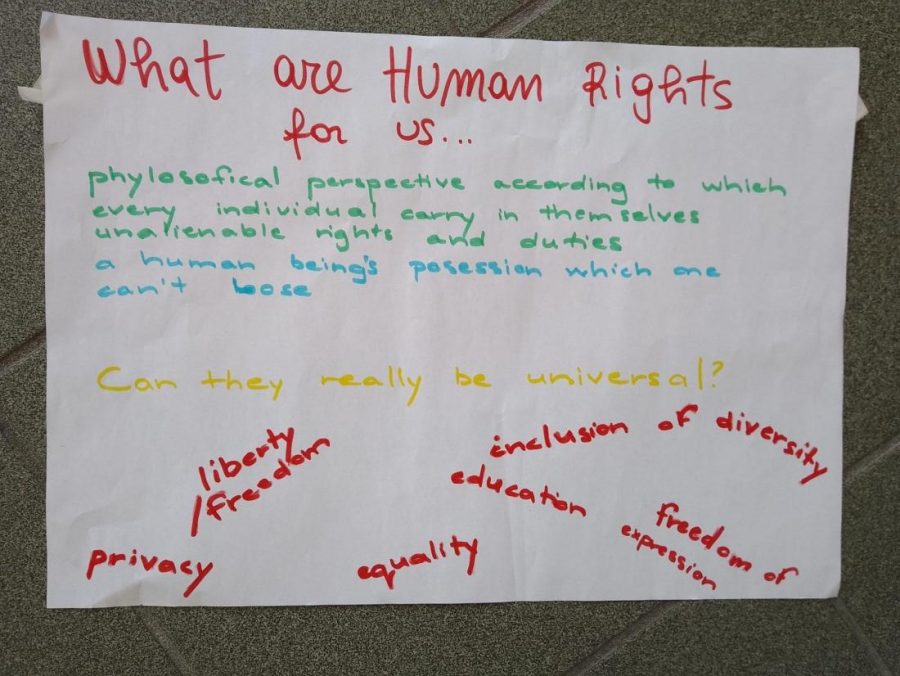 What are Human Rights
for us...
phylosofical perspective according to which
every individual carry in themselves
unalienable rights and duties
a human being's posession which one
can't loose
Can they really be universal?
liberty
/freedom
inclusion of diversity
education
freedom of
expression
privacy
equality